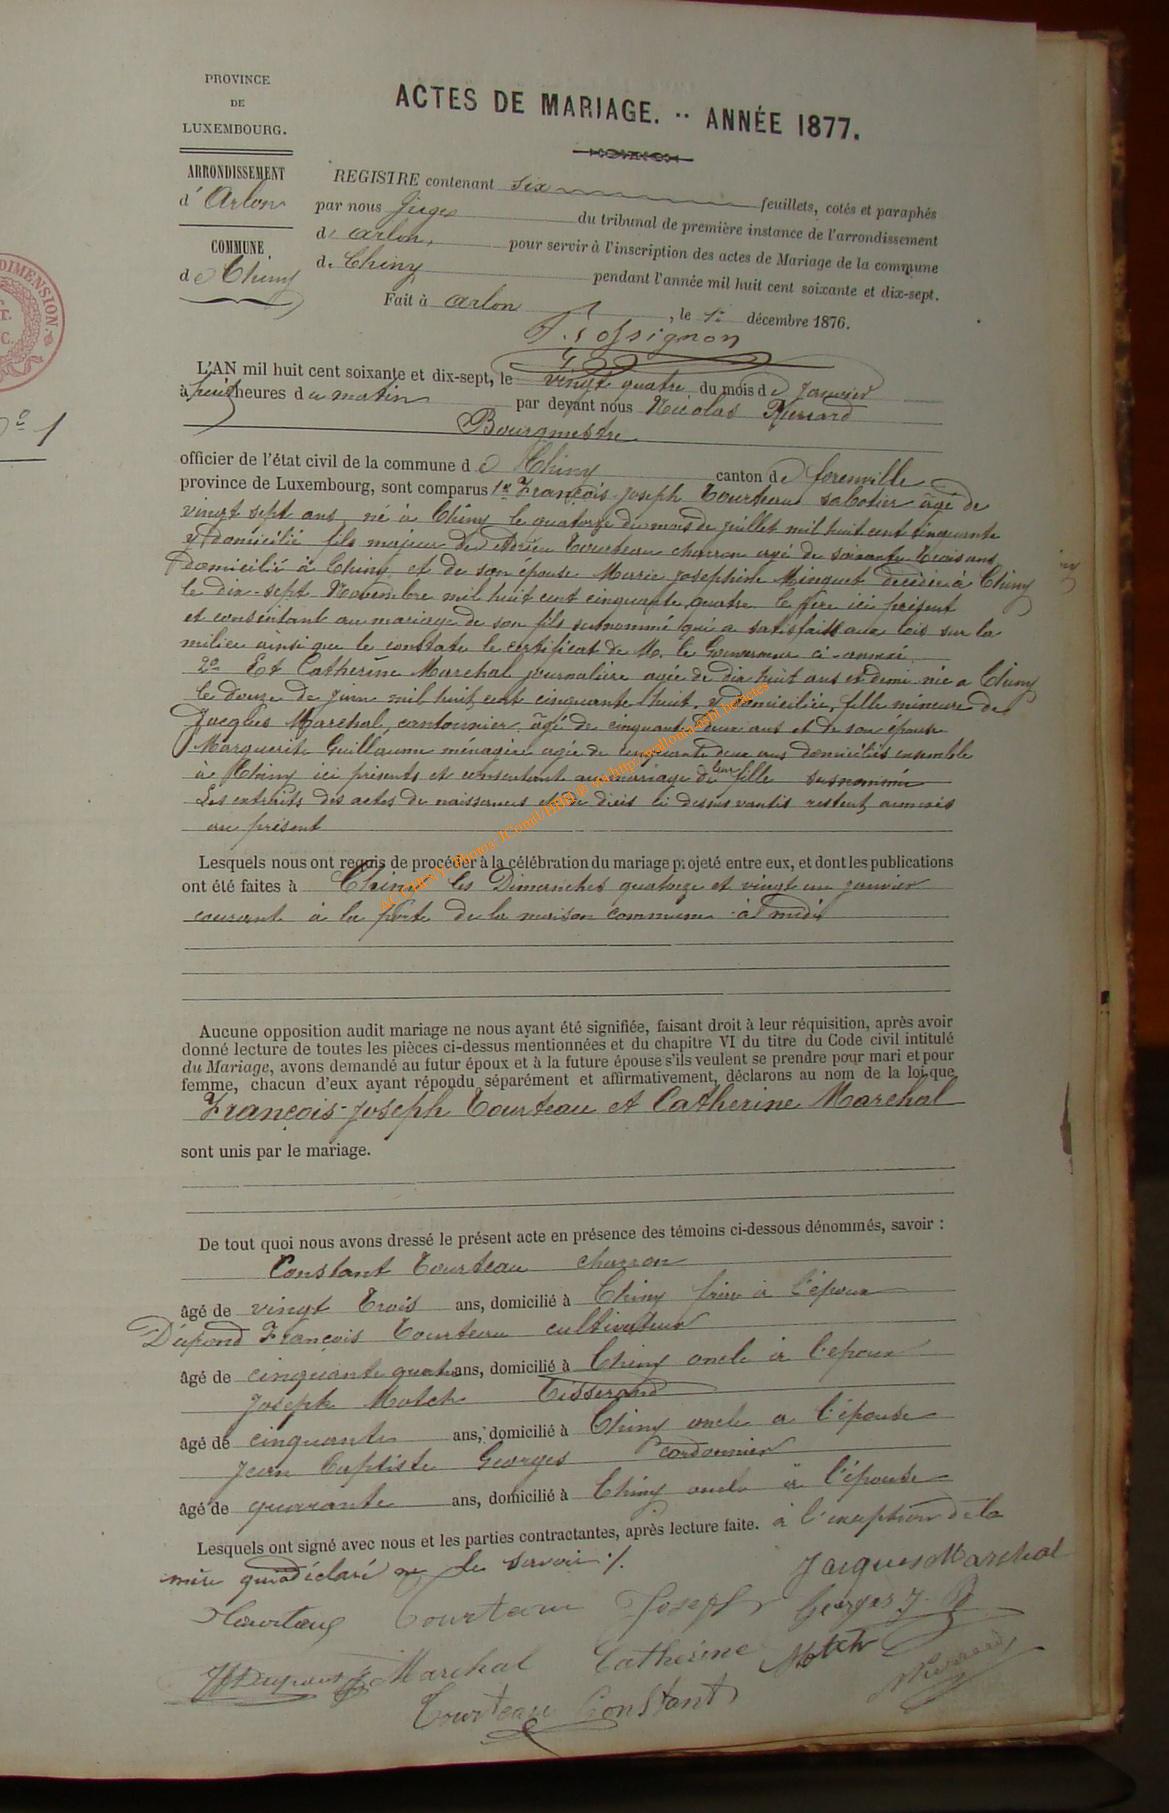 PROVINCE
DE
LUXEMBOURG.
ARRONDISSEMENT
d'Arlon
COMMUNE
de Chiny
DIMENSION.
Nº 1
ACTES DE MARIAGE. -- ANNÉE 1877.
REGISTRE contenant six feuillets, cotés et paraphés
par nous Juge du tribunal de première instance de l'arrondissement
d' arlon, pour servir à l'inscription des actes de Mariage de la commune
de Chiny pendant l'année mil huit cent soixante et dix-sept.
Fait à arlon, le 1r décembre 1876.
L'AN mil huit cent soixante et dix-sept, le vingt quatre du mois de Janvier
à huit heures du matin par devant nous Nicolas Pierrard
Bourgmestre
officier de l'état civil de la commune de Chiny canton de florenville
province de Luxembourg, sont comparus 1º François-Joseph Tourteau sabotier âgé de
vingt sept ans né à Chiny le quatorze du mois de juillet mil huit cent cinquante
y domicilié fils majeur de Adrien Tourteau charron agé de soixante trois ans
domicilié à Chiny et de son épouse Marie Josephine Minguet decédée à Chiny
le dix-sept Novembre mil huit cent cinquante quatre le père ici présent
et consentant au mariage de son fils susnommé qui a satisfait aux lois sur la
milice ainsi que le constate le certificat de M. le Gouverneur ci-annexé
2º Et Catherine Marchal journalière agée de dix huit ans et demi née a Chiny
le douze de Juin mil huit cent cinquante huit, y domiciliée, fille mineure de
Jacques Marchal, cantonnier âgé de cinquante deux ans et de son épouse
Marguerite Guillaume ménagère agée de cinquante deux ans domiciliés ensemble
à Chiny ici présents et consentant au mariage de leur fille susnommée
Les extraits des actes de naissances et de décès ci dessus vantés restent annexés
au présent
Lesquels nous ont requis de procéder à la célébration du mariage projeté entre eux, et dont les publications
ont été faites à Chiny les Dimanches quatorze et vingt un janvier
courant à la porte de la maison commune à midi
Aucune opposition audit mariage ne nous ayant été signifiée, faisant droit à leur réquisition, après avoir
donné lecture de toutes les pièces ci-dessus mentionnées et du chapitre VI du titre du Code civil intitulé
du Mariage, avons demandé au futur époux et à la future épouse s'ils veulent se prendre pour mari et pour
femme, chacun d'eux ayant répondu séparément et affirmativement, déclarons au nom de la loi que
François-Joseph Tourteau et Catherine Marchal
sont unis par le mariage.
De tout quoi nous avons dressé le présent acte en présence des témoins ci-dessous dénommés, savoir :
Constant Tourteau charron
âgé de vingt trois ans, domicilié à Chiny frère à l'époux
François Tourteau cultivateur
âgé de cinquante quatre ans, domicilié à Chiny oncle à l'epoux
Joseph Motch Tisserand
âgé de cinquante ans, domicilié à Chiny oncle a l'épouse
Jean Baptiste Georges cordonnier
âgé de quarante ans, domicilié à Chiny oncle à l'épouse
Lesquels ont signé avec nous et les parties contractantes, après lecture faite. à l'exception de la
mère qui a déclaré ne le savoir ./.
Jacques Marchal
Tourteau Joseph Georges J. B.
Marchal Catherine Motch
Tourteau Constant